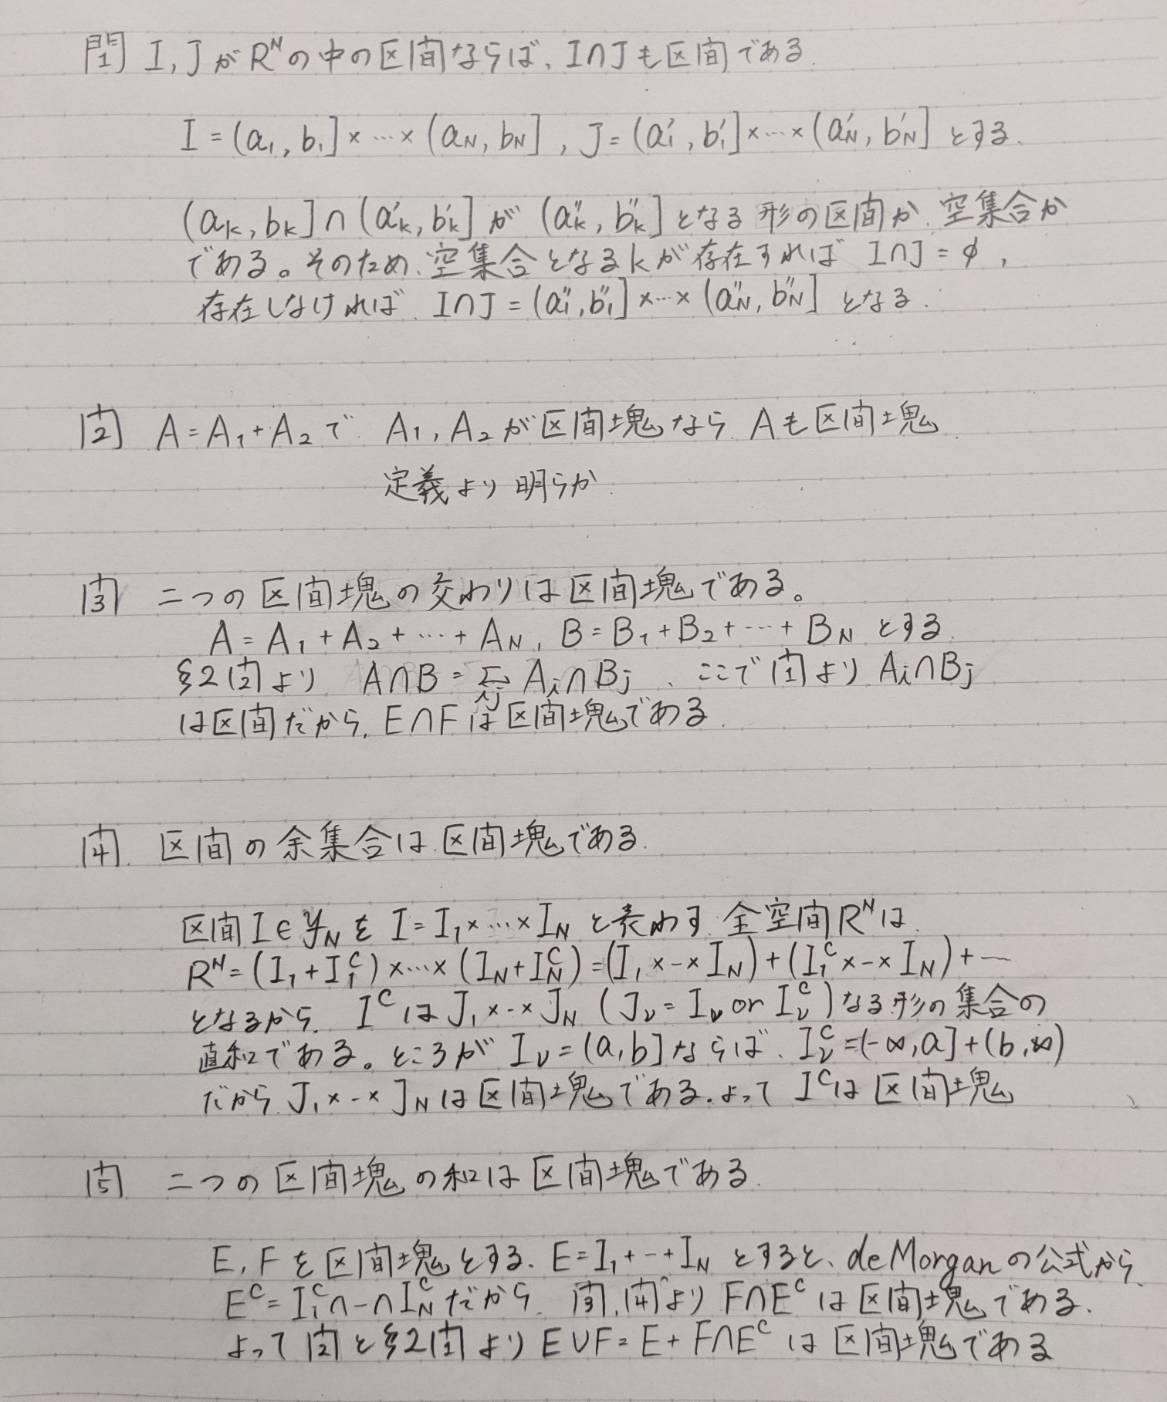 問1 I, J が R^N の中の区間ならば、I∩J も区間である.
I = (a₁, b₁] × … × (a_N, b_N] , J = (a'₁, b'₁] × … × (a'_N, b'_N] とする.
(a_k, b_k] ∩ (a'_k, b'_k] が (a''_k, b''_k] となる形の区間か、空集合か
である。そのため、空集合となるkが存在すれば I∩J = φ ,
存在しなければ、I∩J = (a''₁, b''₁] × … × (a''_N, b''_N] となる.
問2 A = A₁ + A₂ で A₁, A₂ が区間塊なら A も区間塊
定義より明らか
問3 二つの区間塊の交わりは区間塊である。
A = A₁ + A₂ + … + A_N, B = B₁ + B₂ + … + B_N とする.
§2問2より A∩B = Σ_{i,j} A_i∩B_j 、ここで問1より A_i∩B_j
は区間だから、E∩F は区間塊である.
問4. 区間の余集合は区間塊である.
区間 I ∈ 𝒥_N を I = I₁ × … × I_N と表わす 全空間 R^N は
R^N = (I₁ + I₁^c) × … × (I_N + I_N^c) = (I₁ × … × I_N) + (I₁^c × … × I_N) + …
となるから、I^c は J₁ × … × J_N (J_ν = I_ν or I_ν^c) なる形の集合の
直和である。ところが I_ν = (a, b] ならば、I_ν^c = (-∞, a] + (b, ∞)
だから J₁ × … × J_N は区間塊である. よって I^c は区間塊
問5 二つの区間塊の和は区間塊である.
E, F を区間塊とする. E = I₁ + … + I_N とすると、de Morgan の公式から
E^c = I₁^c ∩ … ∩ I_N^c だから 問3, 問4より F∩E^c は区間塊である.
よって 問2と§2問1より E∪F = E + F∩E^c は区間塊である